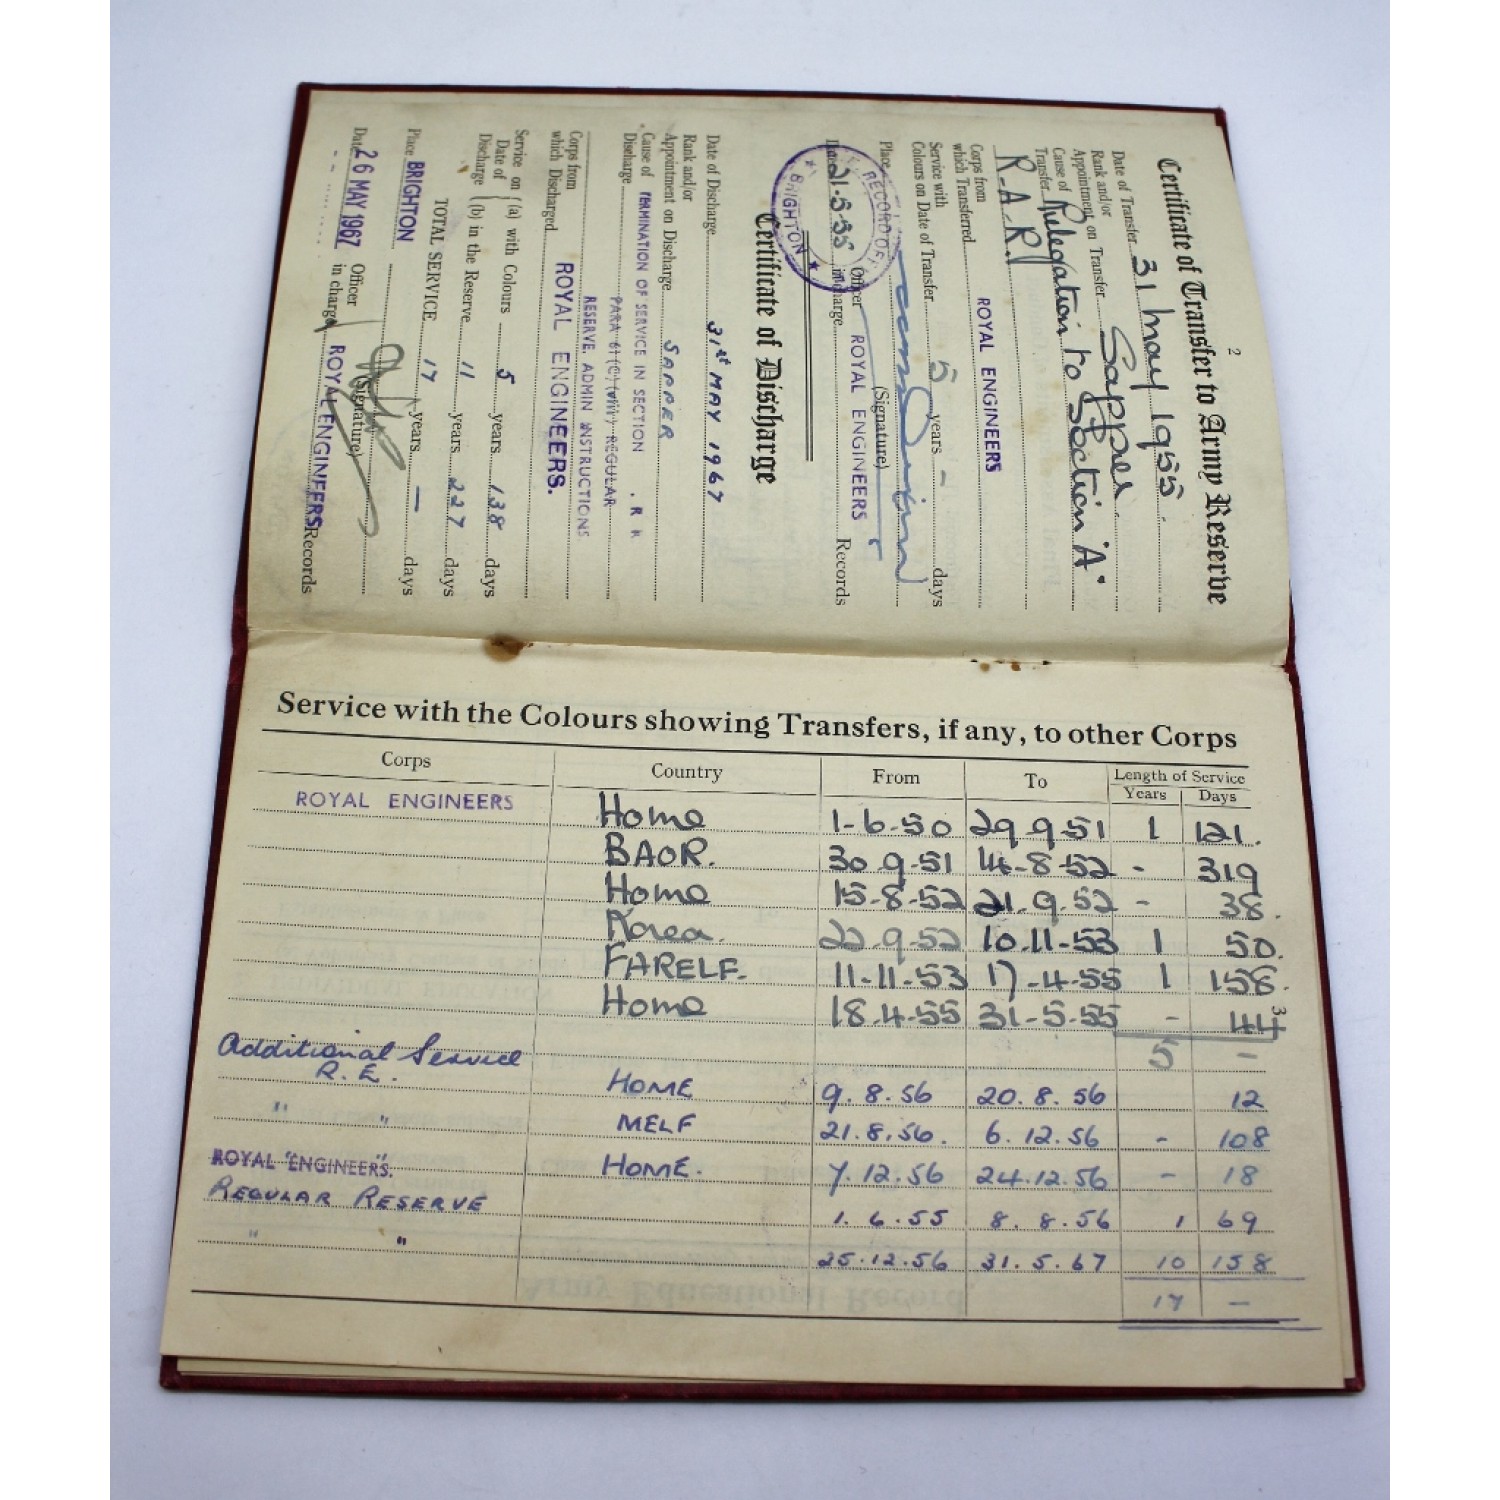 2
Certificate of Transfer to Army Reserve
Date of Transfer 31 May 1955
Rank and/or
Appointment on Transfer Sapper
Cause of
Transfer Relegation to Section 'A'
R.A.R.
Corps from
which Transferred ROYAL ENGINEERS
Service with
Colours on Date of Transfer 5 years - days
Place (Signature)
Date 21-5-55 Officer
in charge ROYAL ENGINEERS Records
RECORD OFF
★ BRIGHTON ★
Certificate of Discharge
Date of Discharge 31st MAY 1967
Rank and/or
Appointment on Discharge SAPPER
Cause of
Discharge TERMINATION OF SERVICE IN SECTION
PARA 61 (C) (viii) REGULAR
RESERVE. ADMIN INSTRUCTIONS
Corps from
which Discharged ROYAL ENGINEERS.
Service on
Date of
Discharge
(a) with Colours 5 years 138 days
(b) in the Reserve 11 years 227 days
TOTAL SERVICE 17 years — days
Place BRIGHTON (Signature)
Date 26 MAY 1967 Officer
in charge ROYAL ENGINEERS Records
Service with the Colours showing Transfers, if any, to other Corps
Corps Country From To Length of Service
Years Days
ROYAL ENGINEERS Home 1-6-50 29.9.51 1 121.
BAOR. 30.9.51 14-8-52 - 319
Home 15-8-52 21.9.52 - 38.
Korea. 22.9.52 10.11-53 1 50.
FARELF. 11-11-53 17-4-55 1 158.
Home 18.4.55 31-5-55 - 44 3
5 -
Additional Service
R.E. HOME 9.8.56 20.8.56 12
" " MELF 21.8.56. 6.12.56 - 108
ROYAL ENGINEERS. " " HOME. 7.12.56 24.12.56 - 18
REGULAR RESERVE 1.6.55 8.8.56 1 69
" " 25.12.56 31.5.67 10 158
17 -